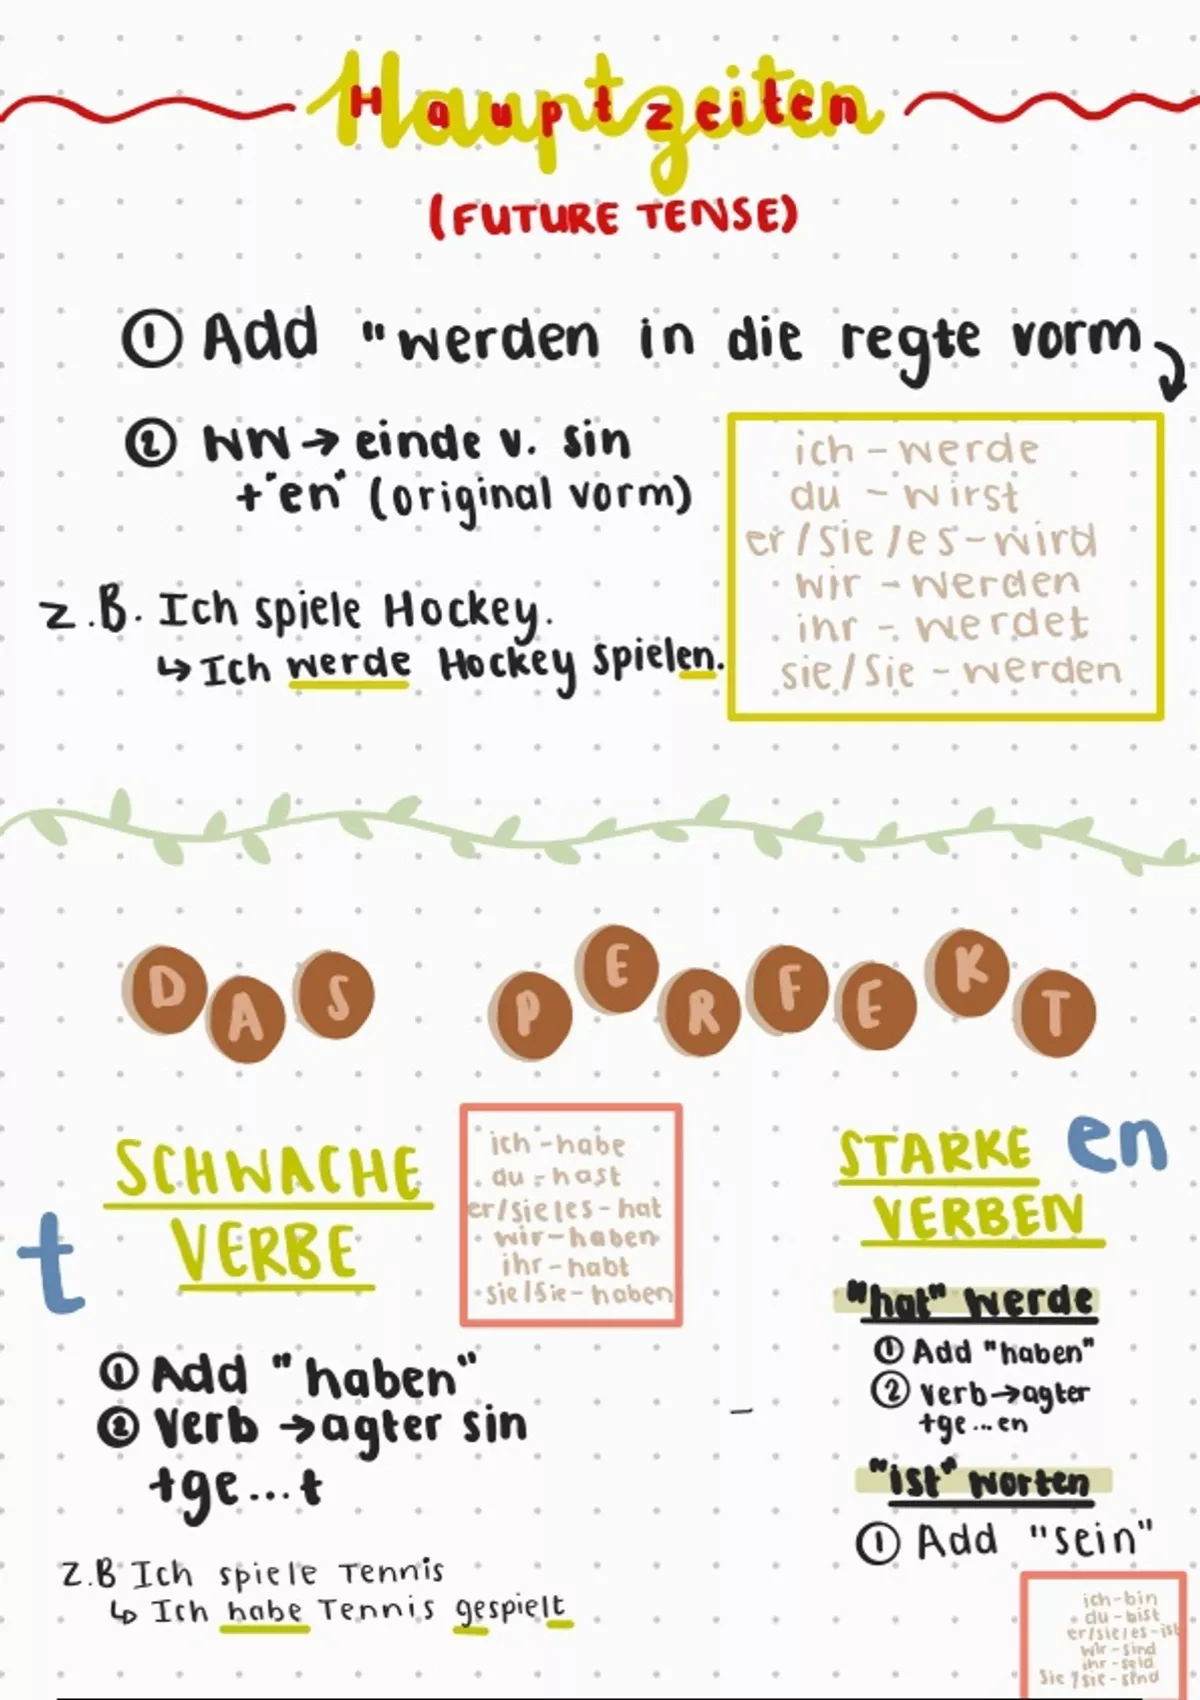 Hauptzeiten
(FUTURE TENSE)
① Add "werden in die regte vorm
② WW → einde v. sin
+"en" (original vorm)
ich - werde
du - wirst
er/sie/es - wird
wir - werden
ihr - werdet
sie/Sie - werden
z.B. Ich spiele Hockey.
↳ Ich werde Hockey spielen.
DAS PERFEKT
SCHWACHE
VERBE
t
ich - habe
du - hast
er/sie/es - hat
wir - haben
ihr - habt
sie/Sie - haben
① Add "haben"
② Verb → agter sin
+ge...t
Z.B Ich spiele Tennis
↳ Ich habe Tennis gespielt
STARKE en
VERBEN
"hat" werde
① Add "haben"
② Verb → agter
+ge...en
"ist" worten
① Add "sein"
ich - bin
du - bist
er/sie/es - ist
wir - sind
ihr - seid
Sie/sie - sind